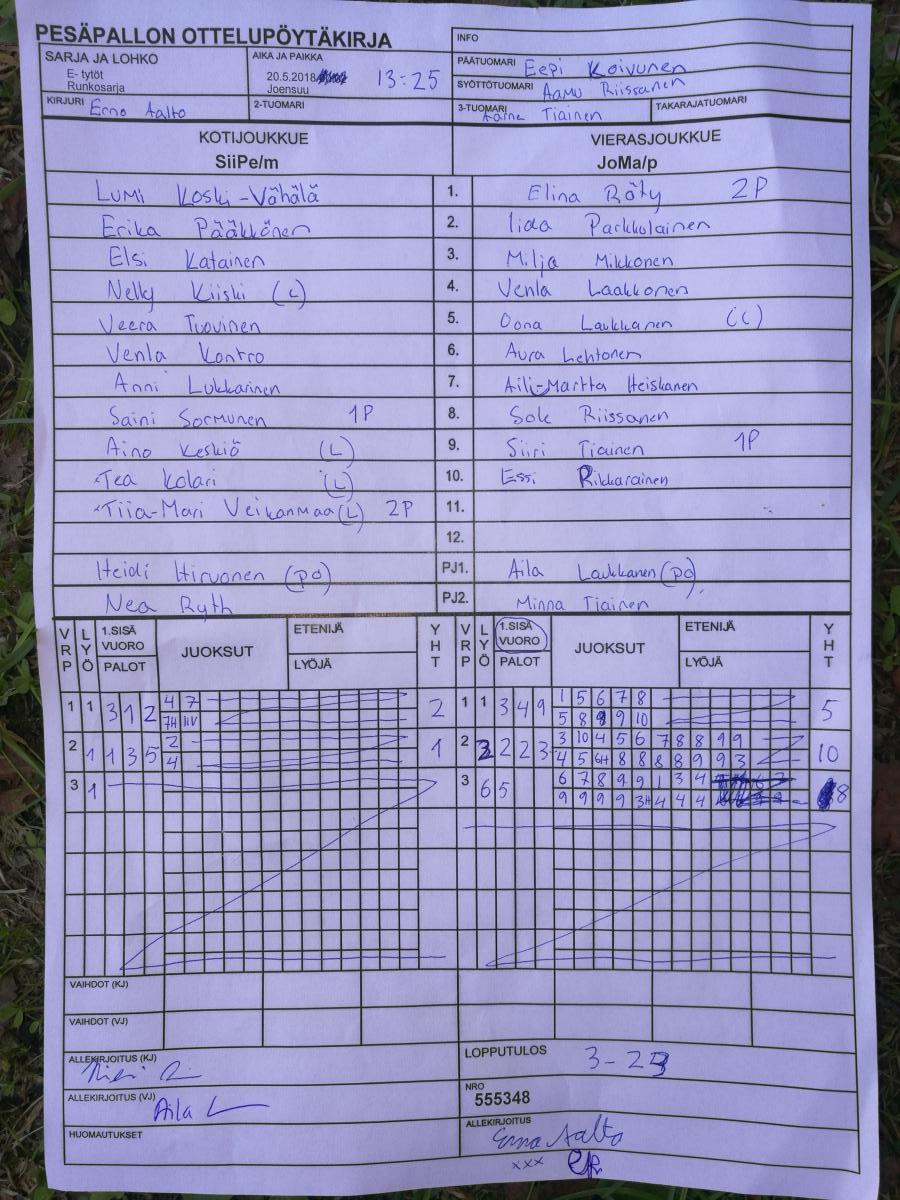 PESÄPALLON OTTELUPÖYTÄKIRJA
INFO
SARJA JA LOHKO
E- tytöt
Runkosarja
AIKA JA PAIKKA
20.5.2018 13:25
Joensuu
PÄÄTUOMARI Eepi Koivunen
SYÖTTÖTUOMARI Aamu Riissanen
KIRJURI Erno Aalto
2-TUOMARI
3-TUOMARI Tiainen
TAKARAJATUOMARI
KOTIJOUKKUE
SiiPe/m
VIERASJOUKKUE
JoMa/p
Lumi Koski-Vähälä 1. Elina Räty 2P
Erika Pääkkönen 2. Iida Parkkolainen
Elsi Katainen 3. Milja Mikkonen
Nelly Kiiski (L) 4. Venla Laakkonen
Veera Tuovinen 5. Oona Laukkanen (L)
Venla Kontro 6. Aura Lehtonen
Anni Lukkarinen 7. Aili-Martta Heiskanen
Saini Sormunen 1P 8. Sole Riissanen
Aino Keskiö (L) 9. Siiri Tiainen 1P
Tea Kolari (L) 10. Essi Rikkarainen
Tiia-Mari Veikanmaa (L) 2P 11.
12.
Heidi Hirvonen (po) PJ1. Aila Laukkanen (po)
Nea Ryth PJ2. Minna Tiainen
VRP LYÖ 1.SISÄ VUORO PALOT JUOKSUT ETENIJÄ LYÖJÄ YHT VRP LYÖ 1.SISÄ VUORO PALOT JUOKSUT ETENIJÄ LYÖJÄ YHT
1 1 3 1 2 4 7 2 1 1 3 4 9 1 5 6 7 8 5
7H 5 8 9 9 10
2 1 1 3 5 2 1 2 2 2 2 3 3 10 4 5 6 7 8 8 9 9 10
4 4 5 6H 8 8 8 8 9 9 3
3 1 3 6 5 6 7 8 9 9 1 3 4 8
9 9 9 9 3H 4 4 4
VAIHDOT (KJ)
VAIHDOT (VJ)
ALLEKIRJOITUS (KJ)
LOPPUTULOS 3-23
ALLEKIRJOITUS (VJ) Aila L
NRO
555348
HUOMAUTUKSET
ALLEKIRJOITUS
Erno Aalto
xxx